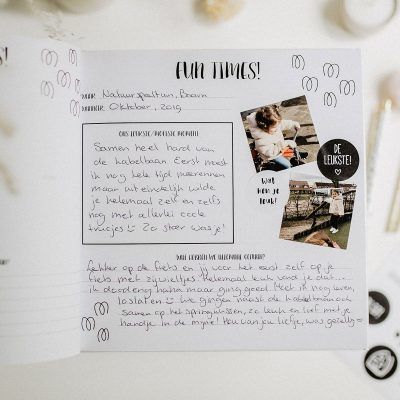 FUN TIMES!
WAAR: Natuurspeeltuin, Baarn
WANNEER: Oktober, 2019
ONS LEUKSTE/MOOISTE MOMENT
Samen heel hard van
de kabelbaan. Eerst moest
ik nog hele tijd meerennen
maar uiteindelijk wilde
je helemaal zelf en zelfs
nog met allerlei coole
trucjes ☺ Zo stoer was je!
DE
LEUKSTE!
Wat
kon je
leuk!
WAT HEBBEN WE ALLEMAAL GEDAAN?
Lekker op de fiets en jij voor het eerst zelf op je
fiets met zijwieltjes. Helemaal leuk vond je dat...
ik doodeng haha maar ging goed. Moet ik nog leren,
loslaten ☺ We gingen naast de kabelbaan ook
samen op het springkussen, zo leuk en lief met je
handje in de mijne! Hou van jou liefje, was gezellig